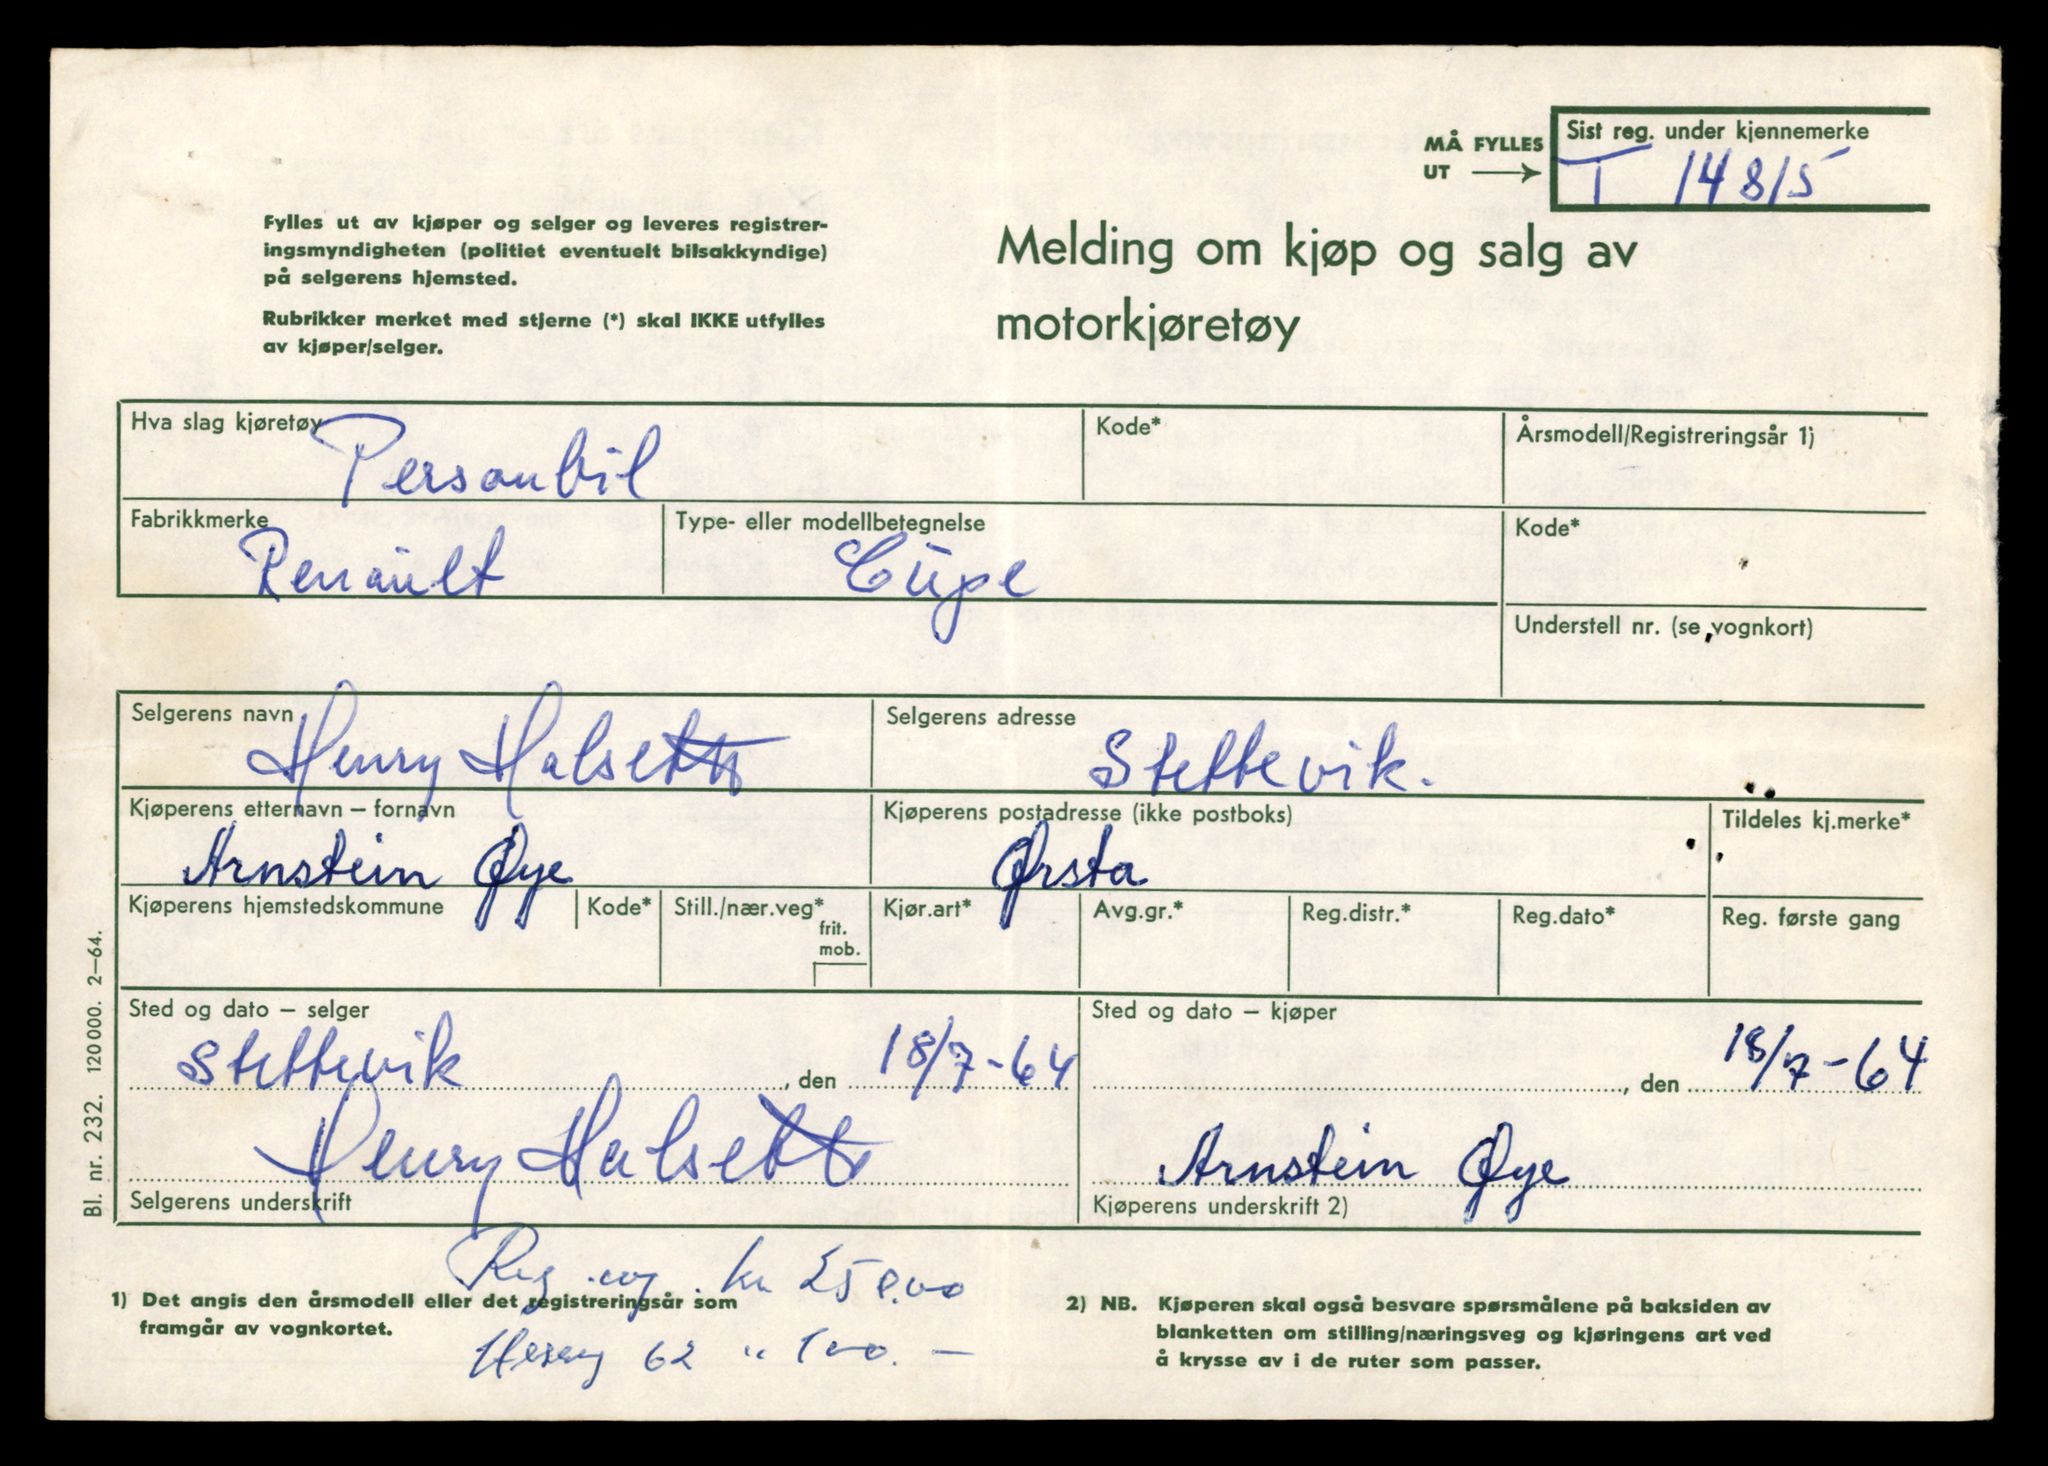 MÅ FYLLES
UT
Sist reg. under kjennemerke
T 14815
Fylles ut av kjøper og selger og leveres registrer-
ingsmyndigheten (politiet eventuelt bilsakkyndige)
på selgerens hjemsted.
Rubrikker merket med stjerne (*) skal IKKE utfylles
av kjøper/selger.
Melding om kjøp og salg av
motorkjøretøy
Hva slag kjøretøy
Personbil
Kode*
Årsmodell/Registreringsår 1)
Fabrikkmerke
Renault
Type- eller modellbetegnelse
Cupe
Kode*
Understell nr. (se vognkort)
Selgerens navn
Henry Halseth
Selgerens adresse
Stettevik.
Kjøperens etternavn – fornavn
Arnstein Øye
Kjøperens postadresse (ikke postboks)
Ørsta
Tildeles kj.merke*
Kjøperens hjemstedskommune
Kode*
Still./nær.veg*
frit.
mob.
Kjør.art*
Avg.gr.*
Reg.distr.*
Reg.dato*
Reg. første gang
Sted og dato – selger
Stettevik , den 18/7-64
Henry Halseth
Selgerens underskrift
Sted og dato – kjøper
, den 18/7-64
Arnstein Øye
Kjøperens underskrift 2)
Bl. nr. 232. 120 000. 2–64.
Reg. kr 250.00
1) Det angis den årsmodell eller det registreringsår som
framgår av vognkortet.
62 " 100.–
2) NB. Kjøperen skal også besvare spørsmålene på baksiden av
blanketten om stilling/næringsveg og kjøringens art ved
å krysse av i de ruter som passer.